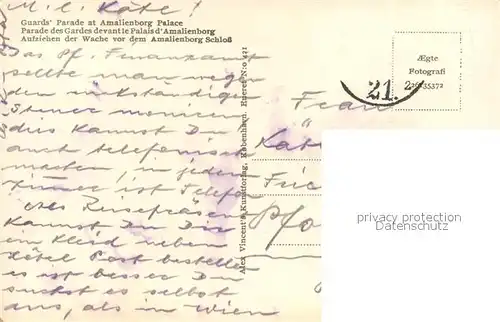 M. l. Käte!
Guards' Parade at Amalienborg Palace
Parade des Gardes devant le Palais d'Amalienborg
Aufziehen der Wache vor dem Amalienborg Schloß
Das Pf. Finanzamt
sollte man wegen
den rückständigen
Steuer
dies kannst Du
auch telefonisch
machen, in jedem
Zimmer ist Telefon
kannst Du Dir
ein Kleid neben
Hotel Post bestellen
es ist besser Du
suchst es selbst
aus, als in Wien
Alex Vincent's Kunstforlag, København. Eneret No 421
Ægte
Fotografi
21.
Frau
privacy protection
Datenschutz